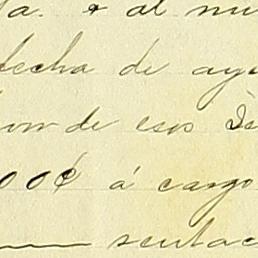 a. & al nu
fecha de ay
de esos
00¢ á cargo
sentac